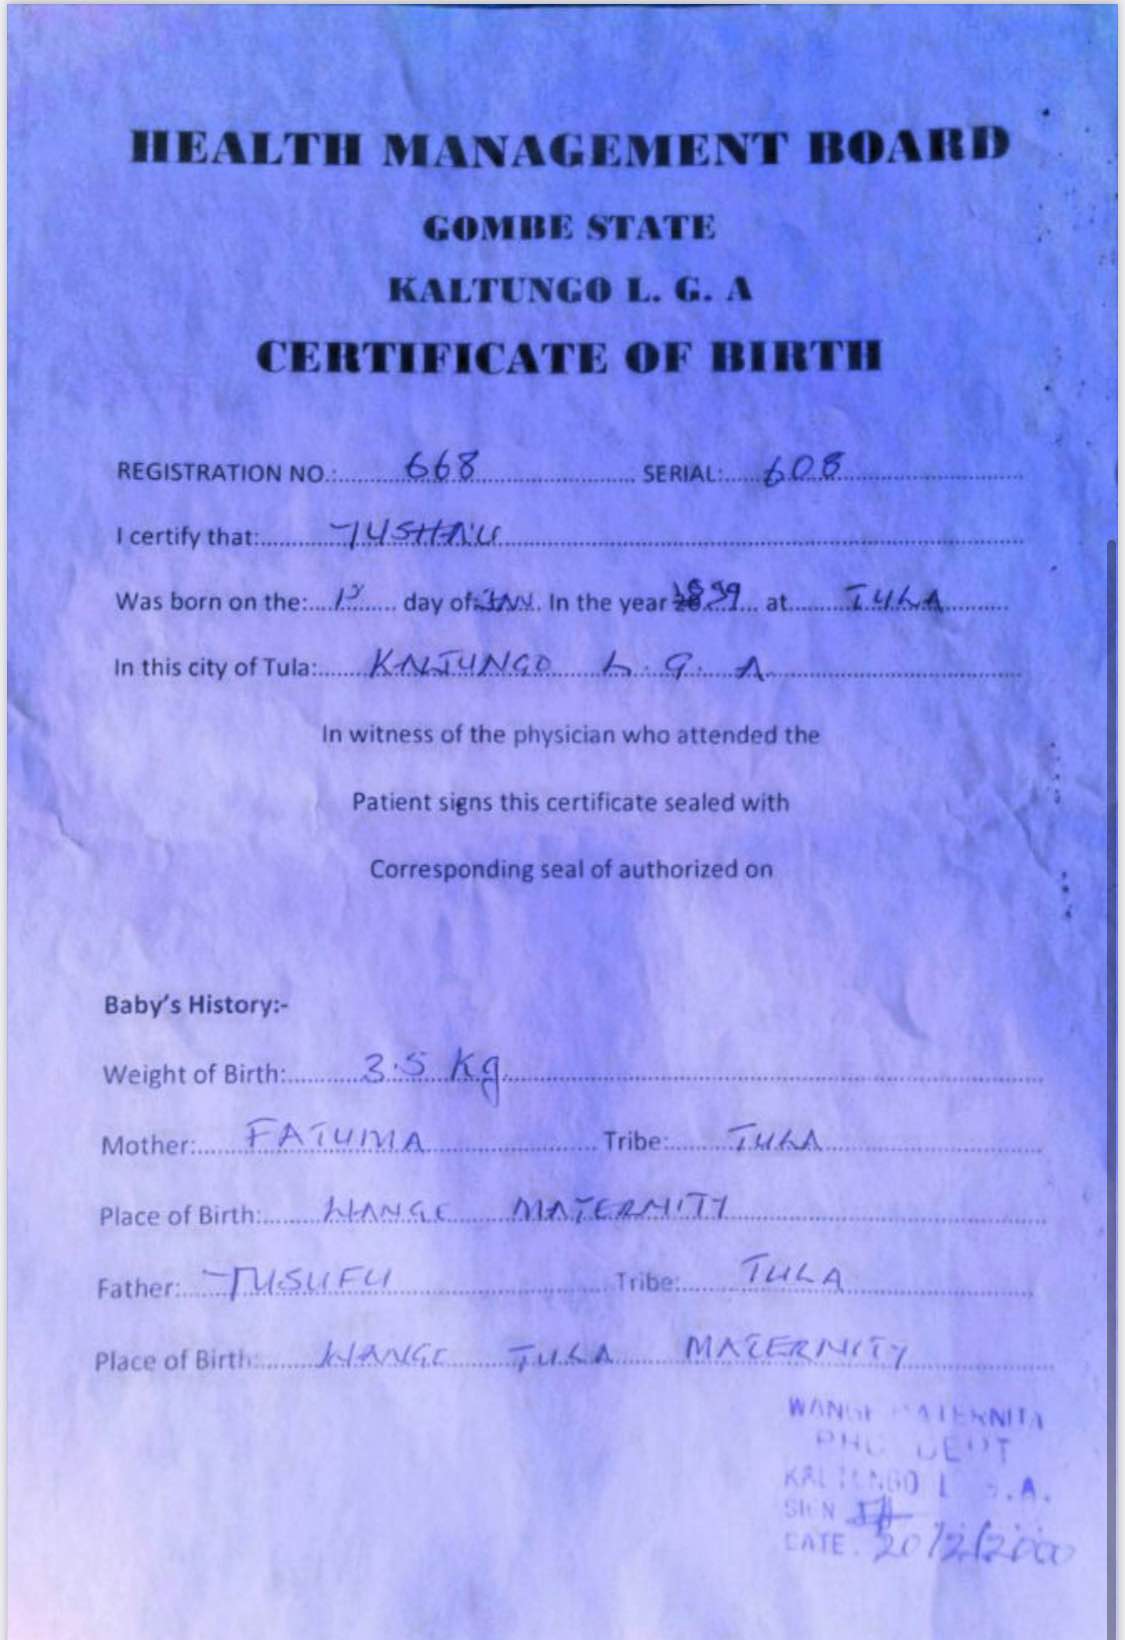 HEALTH MANAGEMENT BOARD
GOMBE STATE
KALTUNGO L. G. A
CERTIFICATE OF BIRTH
REGISTRATION NO.: 668 SERIAL: 608
I certify that: YUSHA'U
Was born on the: day of: JAN. In the year at TULA
In this city of Tula: KALTUNGO L. G. A.
In witness of the physician who attended the
Patient signs this certificate sealed with
Corresponding seal of authorized on
Baby's History:-
Weight of Birth: 3.5 Kg
Mother: FATUMA Tribe: TULA
Place of Birth: WANGE MATERNITY
Father: YUSUFU Tribe: TULA
Place of Birth: WANGE TULA MATERNITY
DEPT
KALTUNGO L.G.A.
SIGN
DATE. 20/2/2000